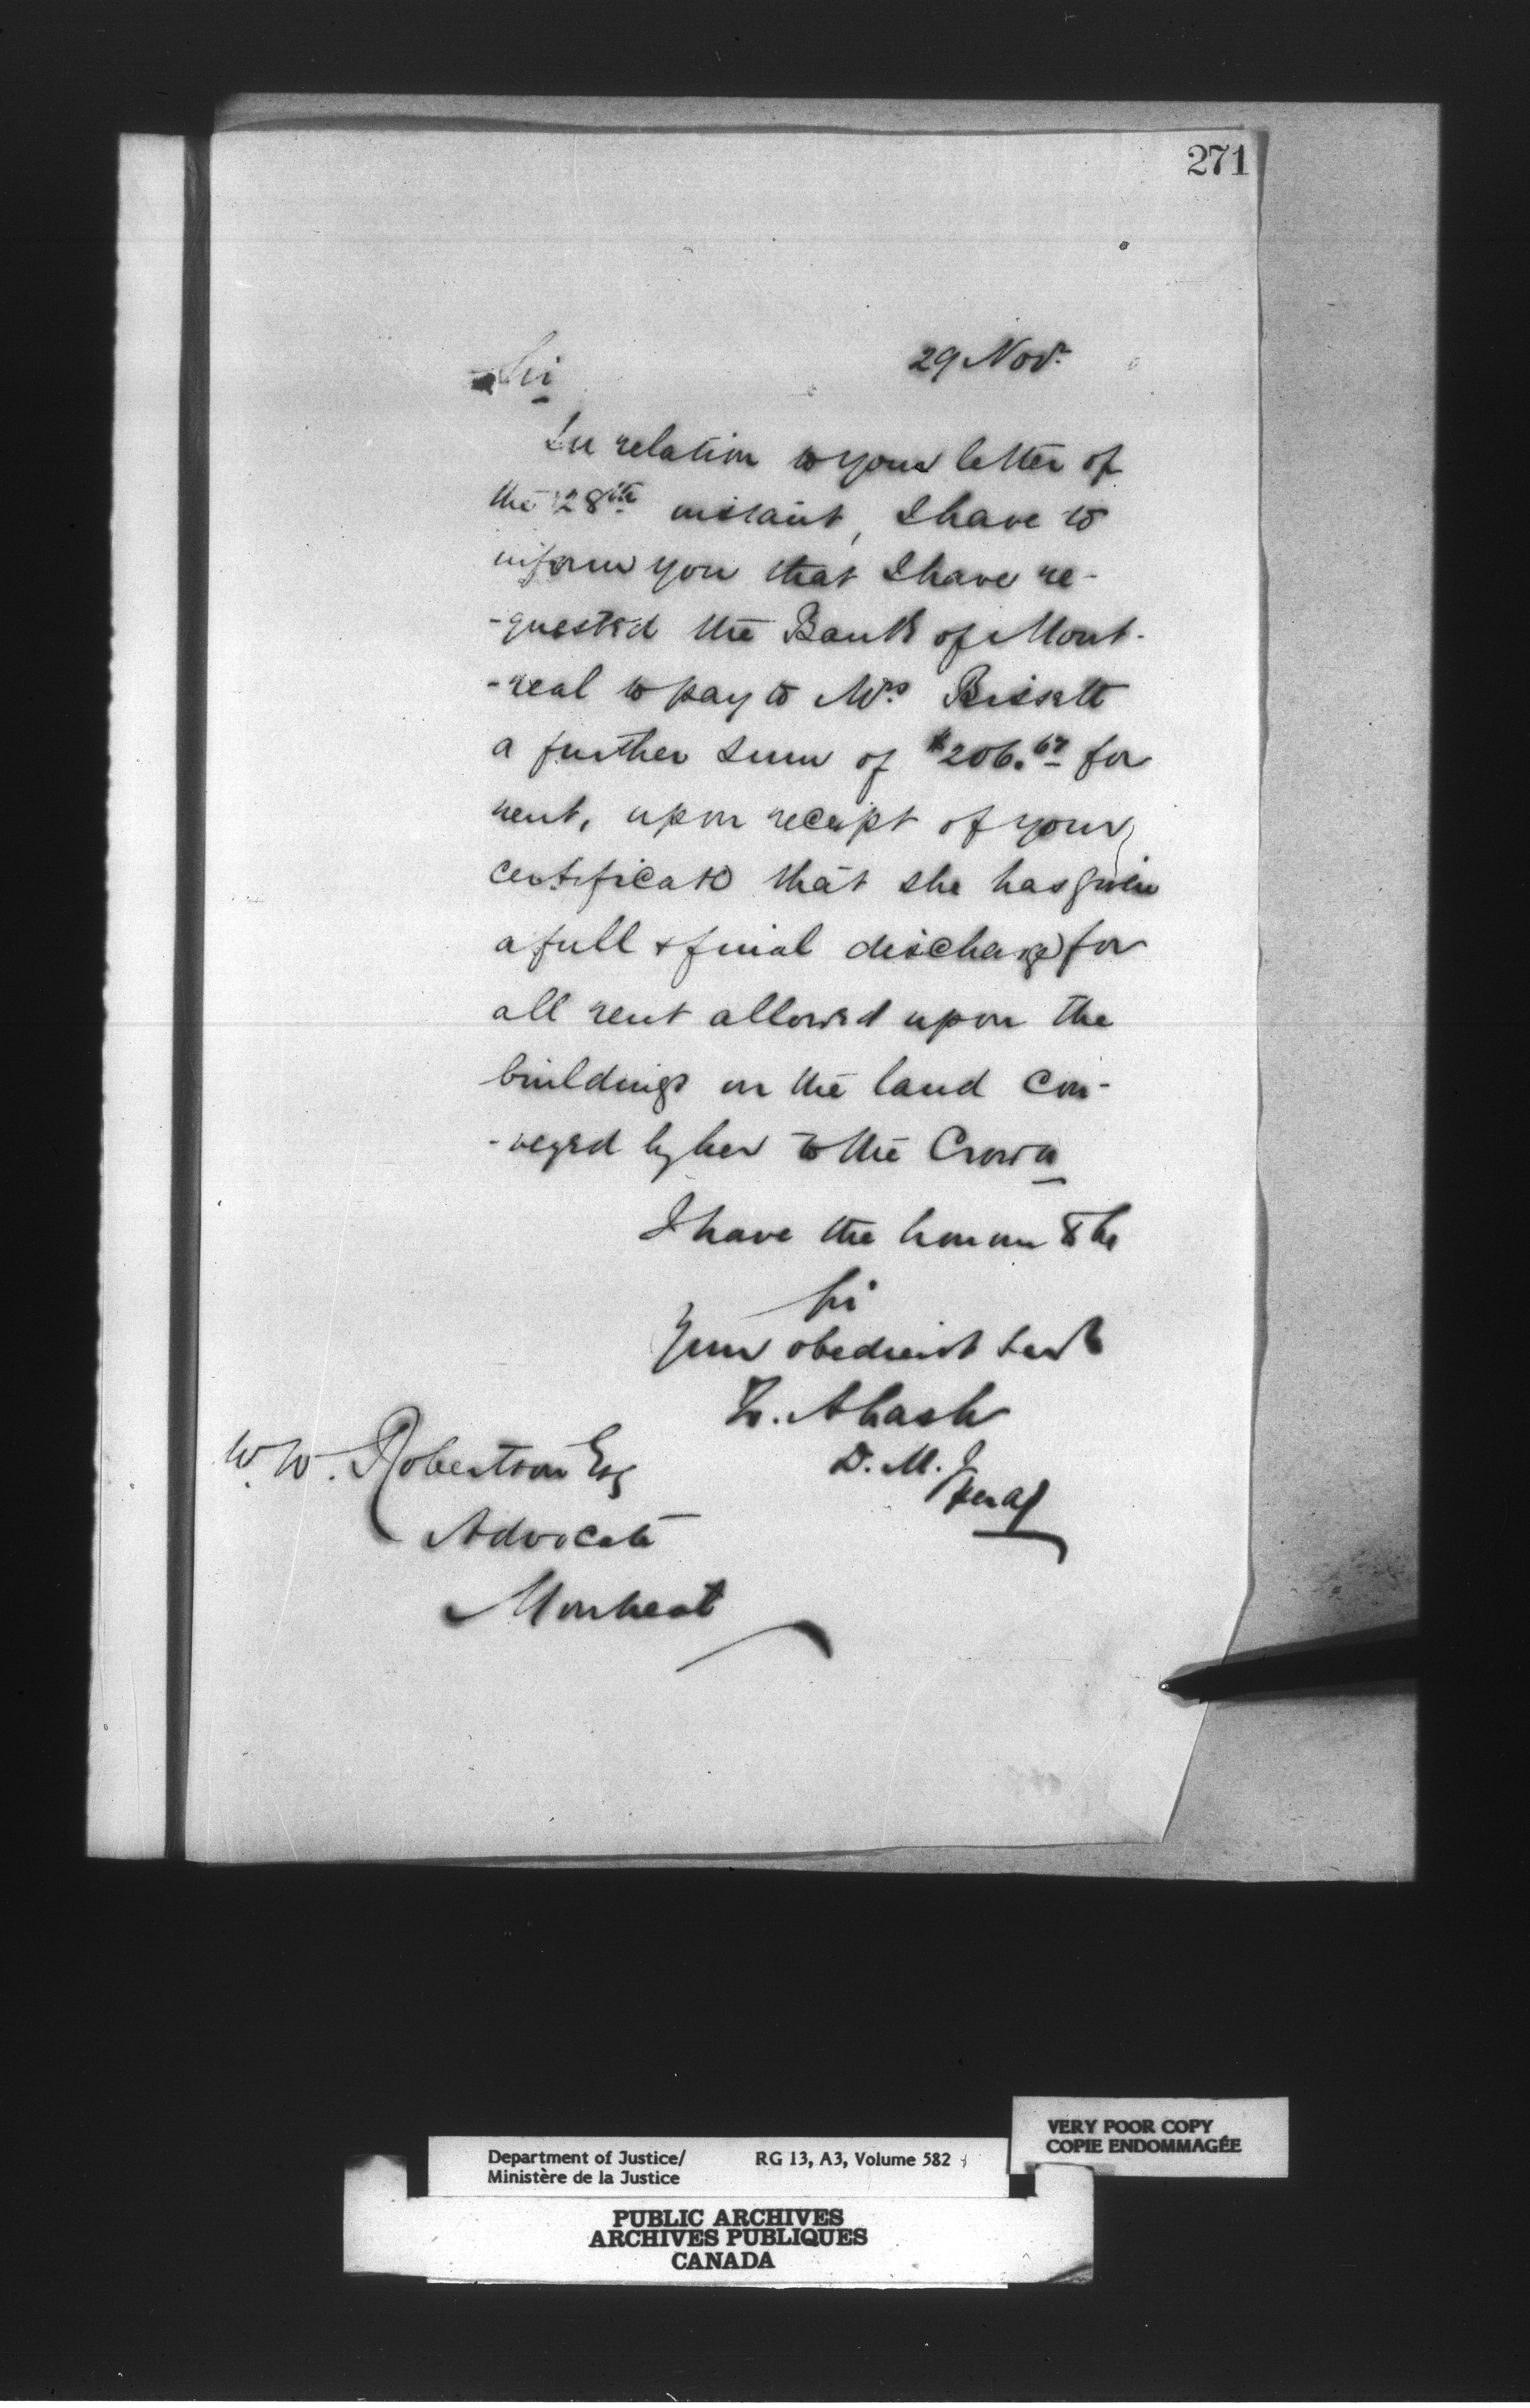 271
29 Nov.
Sir
In relation to your letter of
the 28th instant, I have to
inform you that I have re-
-quested the Bank of Mont-
-real to pay to Mrs Bissett
a further sum of $206.67 for
rent, upon receipt of your
certificate that she has given
a full & final discharge for
all rent allowed upon the
buildings on the land con-
-veyed by her to the Crown
I have the honour to be
Sir
Your obedient Servt
D. M. J.
W. W. Robertson Esq
Advocate
Montreal
VERY POOR COPY
COPIE ENDOMMAGÉE
Department of Justice/ RG 13, A3, Volume 582
Ministère de la Justice
PUBLIC ARCHIVES
ARCHIVES PUBLIQUES
CANADA